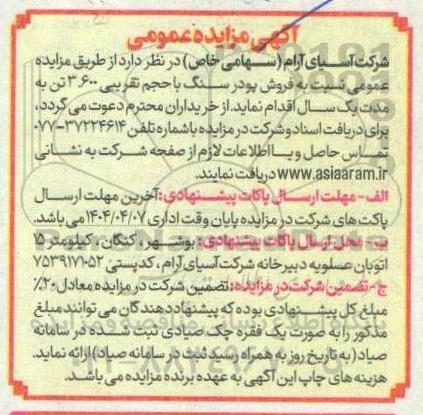 آگهی مزایده عمومی
شرکت آسیای آرام (سهامی خاص) در نظر دارد از طریق مزایده
عمومی نسبت به فروش پودر سنگ با حجم تقریبی ۳.۶۰۰ تن به
مدت یک سال اقدام نماید. از خریداران محترم دعوت می گردد،
برای دریافت اسناد و شرکت در مزایده با شماره تلفن ۳۷۲۲۴۶۱۴-۰۷۷
تماس حاصل و یا اطلاعات لازم از صفحه شرکت به نشانی
www.asiaaram.ir دریافت نمایند.
الف- مهلت ارسال پاکات پیشنهادی: آخرین مهلت ارسال
پاکت های شرکت در مزایده پایان وقت اداری ۱۴۰۴/۰۴/۰۷ می باشد.
ب- محل ارسال پاکات پیشنهادی: بوشهر، کنگان، کیلومتر ۱۵
اتوبان عسلویه دبیرخانه شرکت آسیای آرام، کدپستی ۷۵۳۹۱۷۱۰۵۲
ج- تضمین شرکت در مزایده: تضمین شرکت در مزایده معادل ۲۰٪
مبلغ کل پیشنهادی بوده که پیشنهاددهندگان می توانند مبلغ
مذکور را به صورت یک فقره چک صیادی ثبت شده در سامانه
صیاد (به تاریخ روز به همراه رسید ثبت در سامانه صیاد) ارائه نماید.
هزینه های چاپ این آگهی به عهده برنده مزایده می باشد.